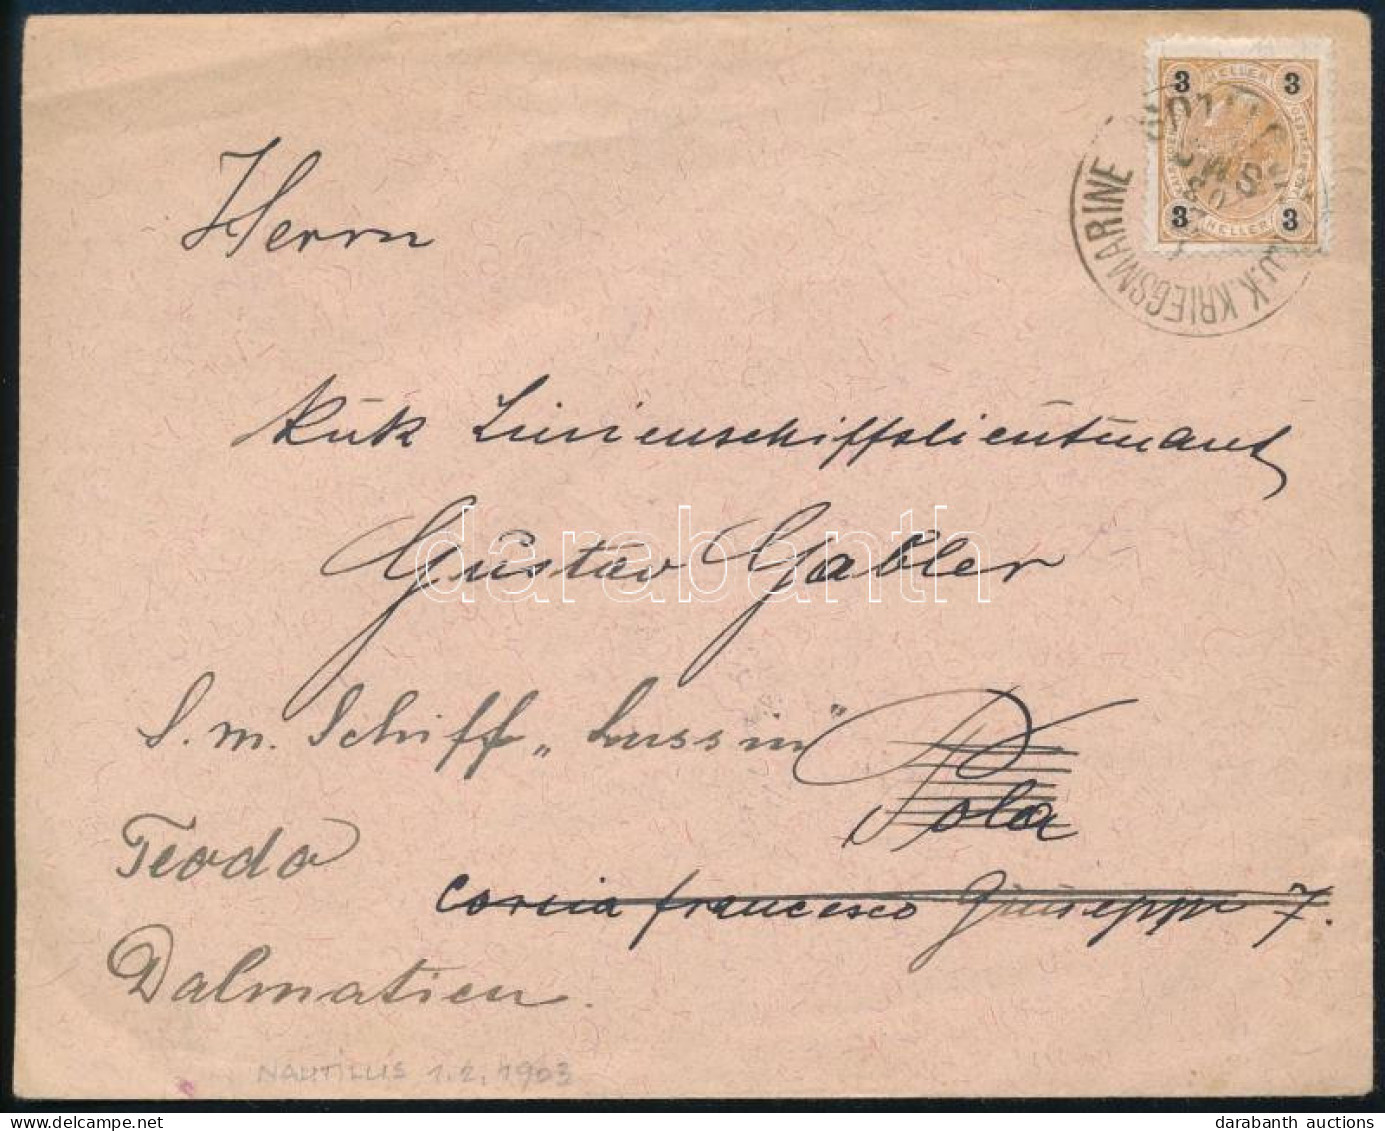 3 HELLER 3
3 HELLER 3
U.K. KRIEGSMARINE
S.M.S.
Herrn
kuk Linienschiffslieutenant
Gustav Gabler
darabanth
S. m. Schiff „Lussin"
Pola
Teodo
Corsia francesco Giuseppe 7.
Dalmatien.
NAUTILUS 1.2.1903
darabanth auctions